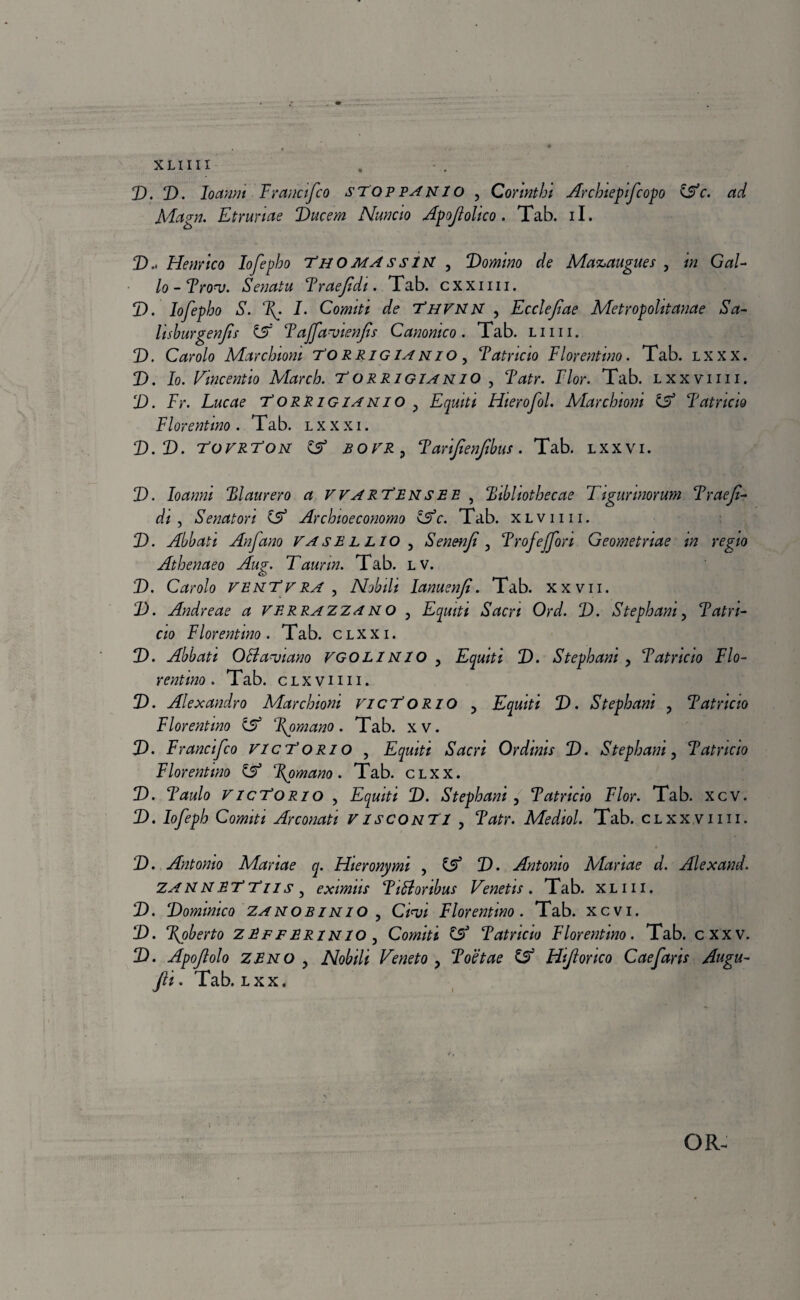 XLIIII
D. D. Ioanni Francisco STOPPANIO, Corinthi Archiepiscopo &c. ad
Magn. Etruriae Ducem Nuncio Apostolico. Tab. il.
D. Henrico Iosepho THOMASSIN, Domino de Mazaugues, in Gal-
lo-Prov. Senatu Praesidi. Tab. cxxiiii.
D. Iosepho S. R. I. Comiti de THVNN, Ecclesiae Metropolitanae Sa-
lisburgensis & Passaviensis Canonico. Tab. liiii.
D. Carolo Marchioni TORRIGIANIO, Patricio Florentino. Tab. lxxx.
D. Io. Vincentio March. TORRIGIANIO, Patr. Flor. Tab. lxxviiii.
D. Fr. Lucae TORRIGIANIO, Equiti Hierosol. Marchioni & Patricio
Florentino. Tab. lxxxi.
D. D. TOVRTON & BOVR, Parisiensibus. Tab. lxxvi.
D. Ioanni Blaurero a VVARTENSEE, Bibliothecae Tigurinorum Praesi-
di, Senatori & Archioeconomo &c. Tab. xlviiii.
D. Abbati Ansano VASELLIO, Senensi, Professori Geometriae in regio
Athenaeo Aug. Taurin. Tab. lv.
D. Carolo VENTVRA, Nobili Ianuensi. Tab. xxvii.
D. Andreae a VERRAZZANO, Equiti Sacri Ord. D. Stephani, Patri-
cio Florentino. Tab. clxxi.
D. Abbati Octaviano VGOLINIO, Equiti D. Stephani, Patricio Flo-
rentino. Tab. clxviiii.
D. Alexandro Marchioni VICTORIO, Equiti D. Stephani, Patricio
Florentino & Romano. Tab. xv.
D. Francisco VICTORIO, Equiti Sacri Ordinis D. Stephani, Patricio
Florentino & Romano. Tab. clxx.
D. Paulo VICTORIO, Equiti D. Stephani, Patricio Flor. Tab. xcv.
D. Ioseph Comiti Arconati VISCONTI, Patr. Mediol. Tab. clxxviiii.
D. Antonio Mariae q. Hieronymi, & D. Antonio Mariae d. Alexand.
ZANNETTIIS, eximiis Pictoribus Venetis. Tab. xliii.
D. Dominico ZANOBINIO, Civi Florentino. Tab. xcvi.
D. Roberto ZEFFERINIO, Comiti & Patricio Florentino. Tab. cxxv.
D. Apostolo ZENO, Nobili Veneto, Poëtae & Historico Caesaris Augu-
sti. Tab. lxx.
OR-